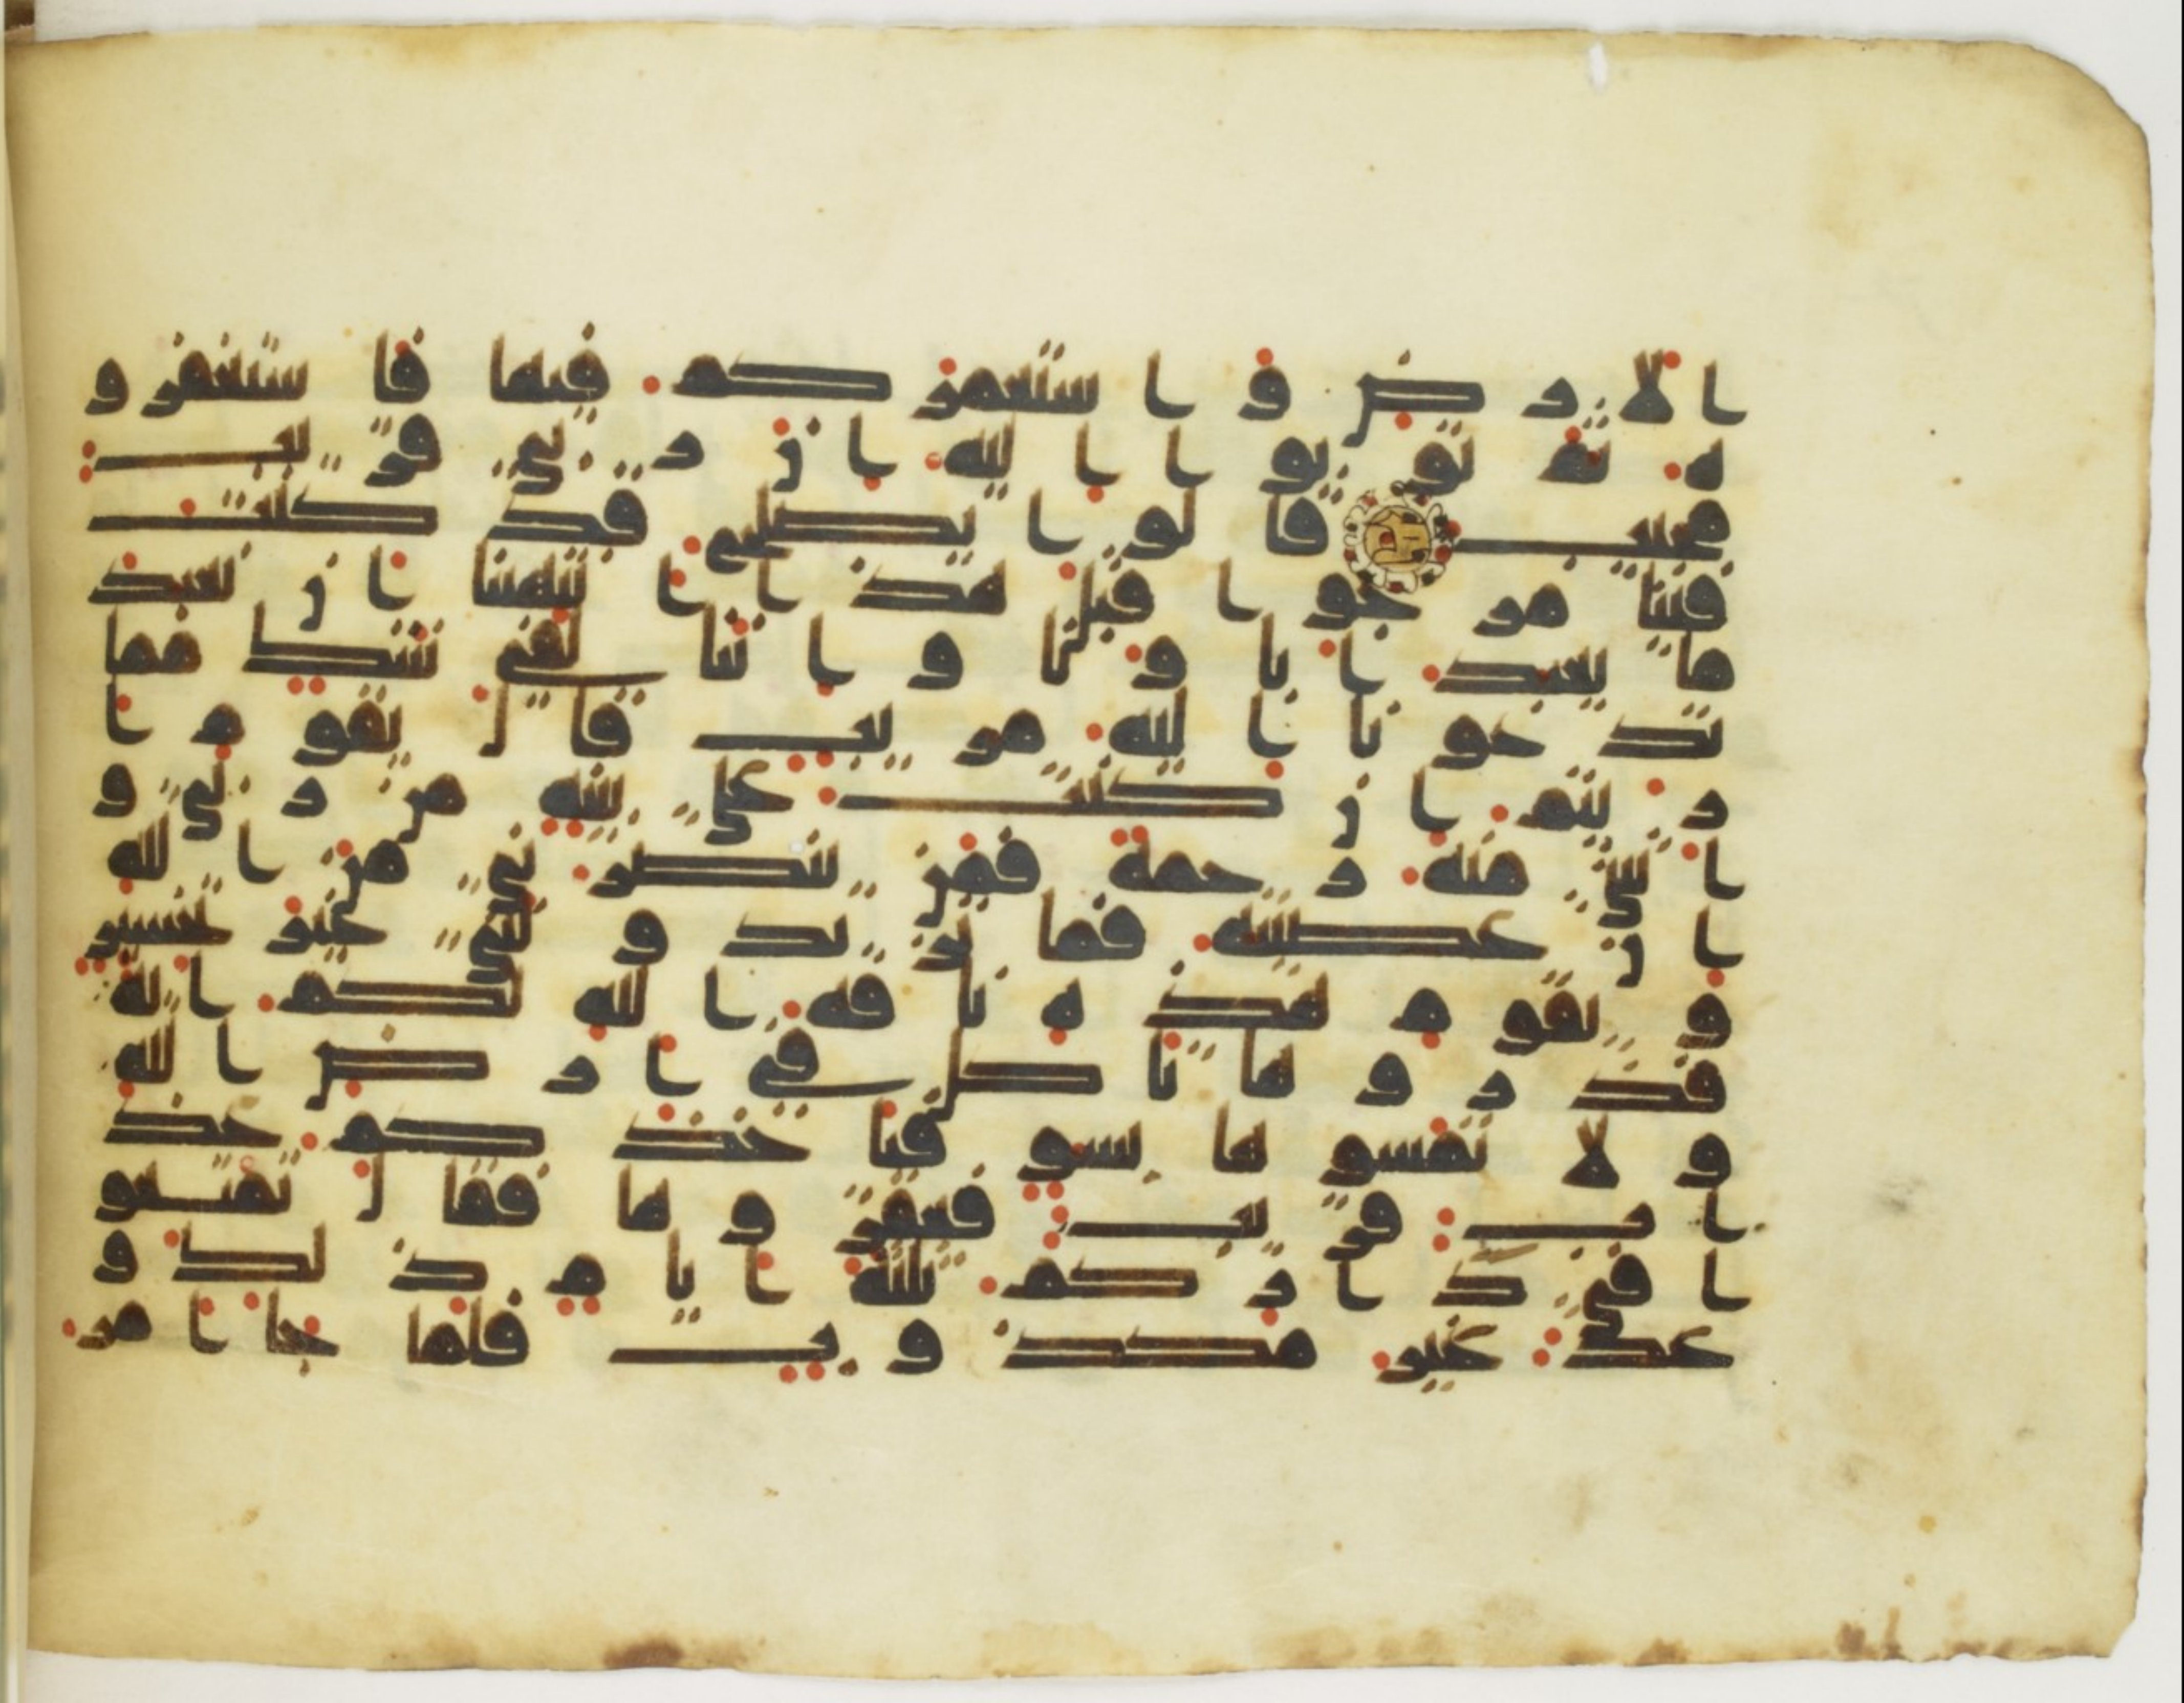 الارض واستعمركم فيها فاستغفرو
ه ثم توبوا اليه ان ربي قريب
مجيب قالوا يصلح قد كنت
فينا مرجوا قبل هذا اتنهينا ان نعبد
ما يعبد اباونا واننا لفي شك مما
تدعونا اليه مريب قال يقوم ا
ريتم ان كنت على بينه من ربي و
اتيني منه رحمة فمن ينصرني من الله
ان عصيته فما تزيدونني غير تخسير
ويقوم هذه ناقه الله لكم ايه
فذروها تاكل في ارض الله
ولا تمسوها بسو فياخذكم عذ
اب قريب فعقروها فقال تمتعو
ا في داركم ثلثه ايام ذلك و
عد غير مكذوب فلما جا امر